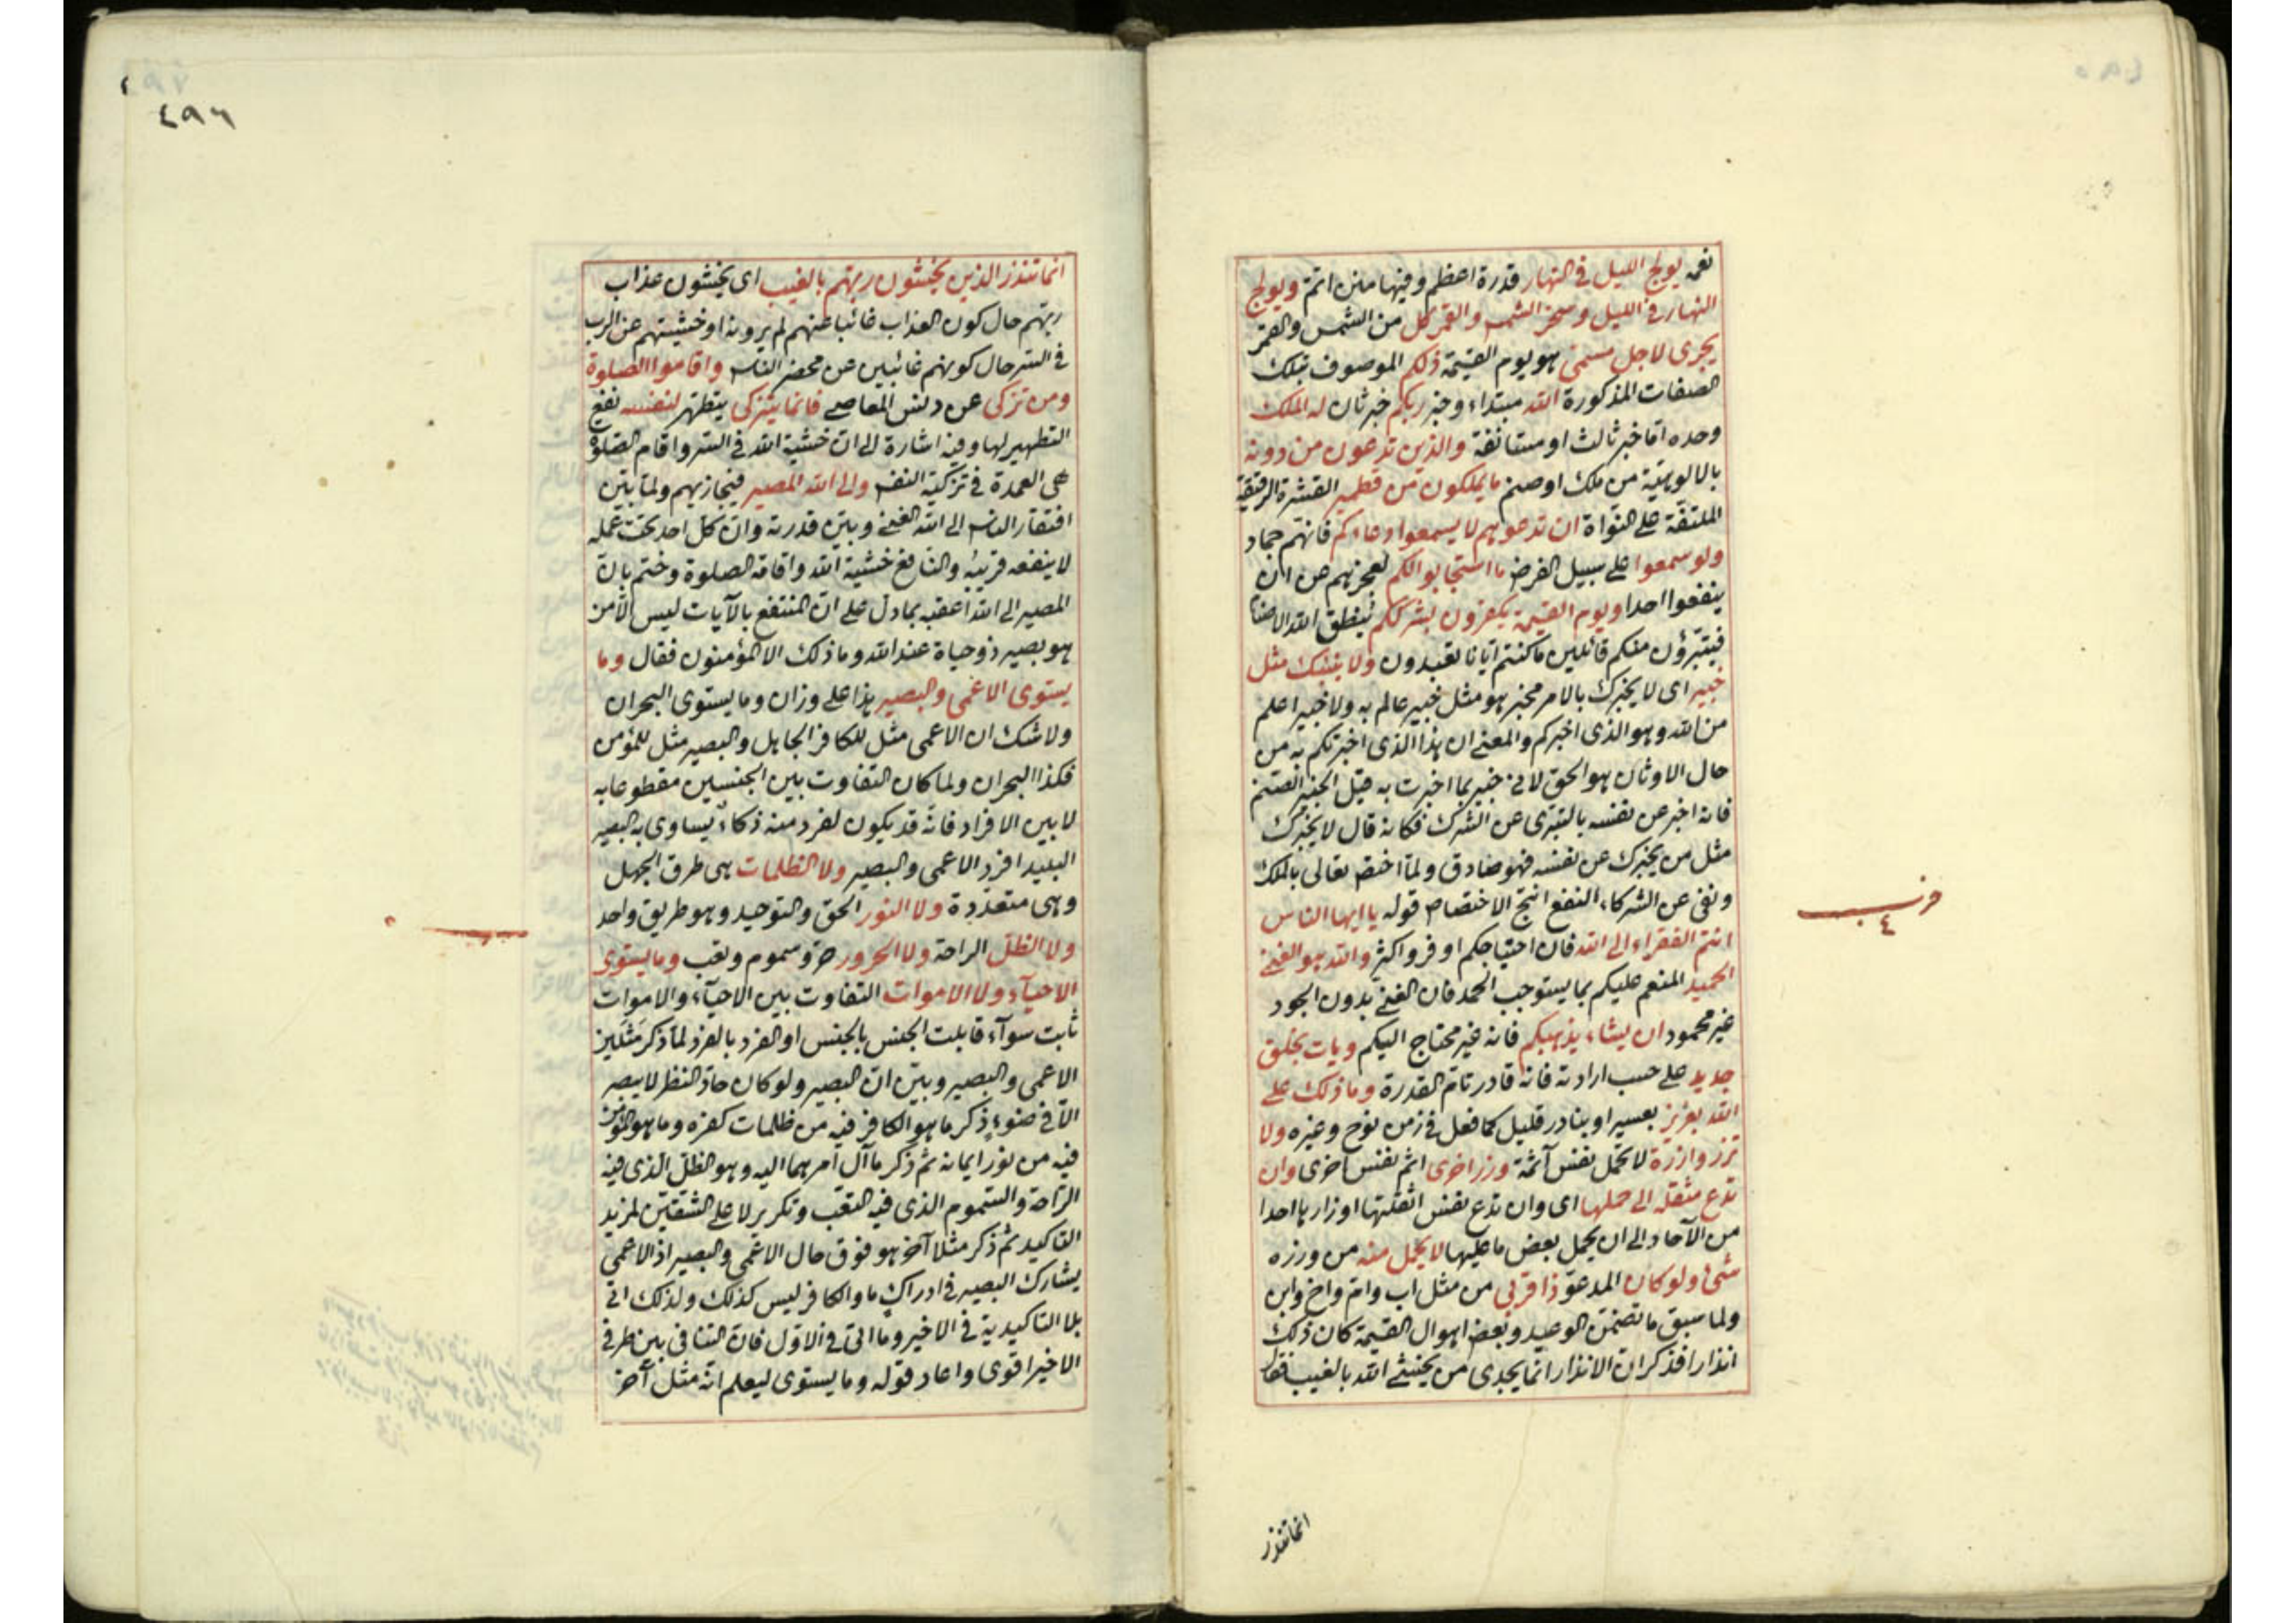 نعمه يولج الليل فى النهار قدرة اعظم وفيها منن اتم ويولج
النهار فى الليل وسخر الشمس والقمر كل من الشمس والقمر
يجرى لاجل مسمى هو يوم القيمة ذلكم الموصوف بتلك
الصفات المذكورة الله مبتداء وخبر ربكم خبر ثان له الملك
وحده اما خبر ثالث او مستانفة والذين تدعون من دونه
بالالوهية من ملك او صنم ما يملكون من قطمير القشرة الرقيقة
الملتفة على النواة ان تدعوهم لا يسمعوا دعاءكم فانهم جماد
ولو سمعوا على سبيل الفرض ما استجابوا لكم لعجزهم عن ان
ينفعوا احدا ويوم القيمة يكفرون بشرككم ينطق الله الاصنام
فيتبرؤن منكم قائلين ما كنتم ايانا تعبدون ولا ينبئك مثل
خبير اى لا يخبرك بالامر مخبر هو مثل خبير عالم به ولا خبير اعلم
من الله وهو الذى اخبركم والمعنى ان هذا الذى اخبرتكم به من
حال الاوثان هو الحق لانى خبير بما اخبرت به قيل الخبير الصنم
فانه اخبر عن نفسه بالتبرى عن الشرك فكانه قال لا يخبرك
مثل من يخبرك عن نفسه فهو صادق ولما اختص تعالى بالملك
ونفى عن الشركاء النفع انتج الاختصاص قوله يا ايها الناس
حزب
٤
انتم الفقراء الى الله فان احتياجكم اوفر واكثر والله هو الغنى
الحميد المنعم عليكم بما يستوجب الحمد فان الغنى بدون الجود
غير محمود ان يشاء يذهبكم فانه غير محتاج اليكم ويات بخلق
جديد على حسب ارادته فانه قادر تام القدرة وما ذلك على
الله بعزيز بعسير او بنادر قليل كما فعل فى زمن نوح وغيره ولا
تزر وازرة لا تحمل نفس آثمة وزر اخرى اثم نفس اخرى وان
تدع مثقلة الى حملها اى وان تدع نفس اثقلتها اوزارها احدا
من الآحاد الى ان يحمل بعض ما عليها لا يحمل منه من وزره
شئ ولو كان المدعو ذا قربى من مثل اب وام واخ وابن
ولما سبق ما تضمن الوعيد وبعض اهوال القيمة كان ذلك
انذارا فذكر ان الانذار انما يجدى من يخشى الله بالغيب فقال
انما تنذر
٤٩٦
انما تنذر الذين يخشون ربهم بالغيب اى يخشون عذاب
ربهم حال كون العذاب غائبا عنهم لم يرونه او خشيتهم عن الرب
فى السر حال كونهم غائبين عن محضر الناس واقاموا الصلوة
ومن تزكى عن دنس المعاصى فانما يتزكى يتطهر لنفسه نفع
التطهير لها وفيه اشارة الى ان خشية الله فى السر واقام الصلوة
هى العمدة فى تزكية النفس والى الله المصير فيجازيهم ولما بين
افتقار الناس الى الله الغنى وبين قدرته وان كل احد تحت عمله
لا ينفعه قريبه والنافع خشية الله واقامة الصلوة وختم بان
المصير الى الله اعقبه بما دل على ان المنتفع بالآيات ليس الا من
هو بصير ذو حياة عند الله وما ذلك الا المؤمنون فقال وما
يستوى الاعمى والبصير هذا على وزان وما يستوى البحران
ولا شك ان الاعمى مثل للكافر الجاهل والبصير مثل للمؤمن
فكذا البحران ولما كان التفاوت بين الجنسين مقطوعا به
لا بين الافراد فانه قد يكون لفرد منه ذكاء يساوى به البصير
البليد افرد الاعمى والبصير ولا الظلمات هى طرق الجهل
وهى متعددة ولا النور الحق والتوحيد وهو طريق واحد
ولا الظل الراحة ولا الحرور حر وسموم وتعب وما يستوى
الاحيآء ولا الاموات التفاوت بين الاحيآء والاموات
ثابت سوآء قابلت الجنس بالجنس او الفرد بالفرد لما ذكر مثلين
الاعمى والبصير وبين ان البصير ولو كان حاد النظر لا يبصر
الا فى ضوء ذكر ما هو الكافر فيه من ظلمات كفره وما هو المؤمن
فيه من نور ايمانه ثم ذكر مآل امرهما اليه وهو الظل الذى فيه
الراحة والسموم الذى فيه التعب وتكرير لا على الشقين لمزيد
التاكيد ثم ذكر مثلا آخر هو فوق حال الاعمى والبصير اذ الاعمى
يشارك البصير فى ادراك ما والكافر ليس كذلك ولذلك اتى
بلا التاكيدية فى الاخير وما اتى فى الاول فان التنافى بين طرفى
الاخير اقوى واعاد قوله وما يستوى ليعلم انه مثل آخر